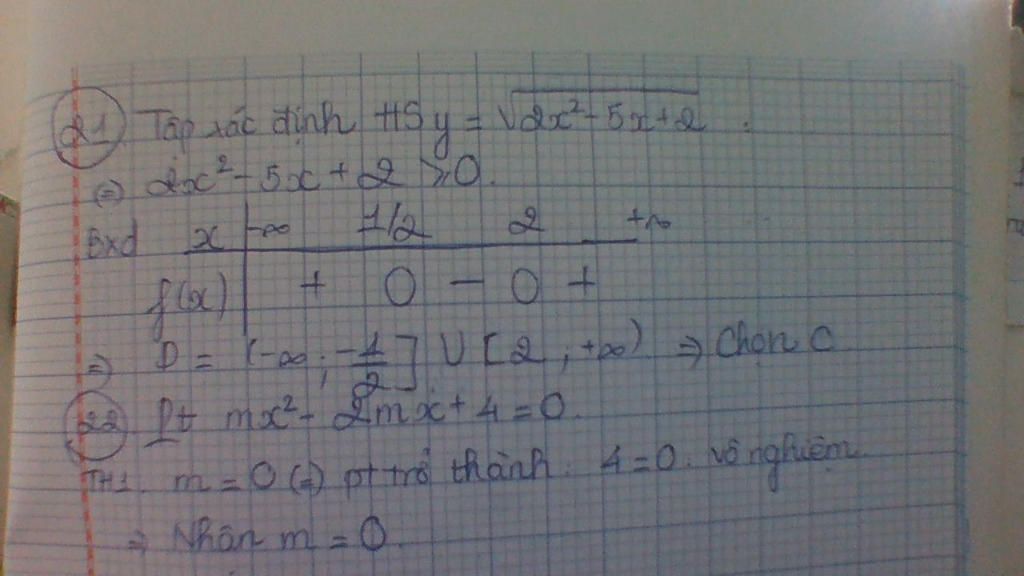 21 Tập xác định HS y = √2x² - 5x + 2 .
(=) 2x² - 5x + 2 ≥ 0.
Bxd x -∞ 1/2 2 +∞
f(x) + 0 - 0 +
=> D = (-∞ ; -1/2] ∪ [2 ; +∞) => Chọn C
22 Pt mx² - 2mx + 4 = 0.
TH1. m = 0 (=) pt trở thành . 4 = 0. vô nghiệm.
=> Nhận m = 0.